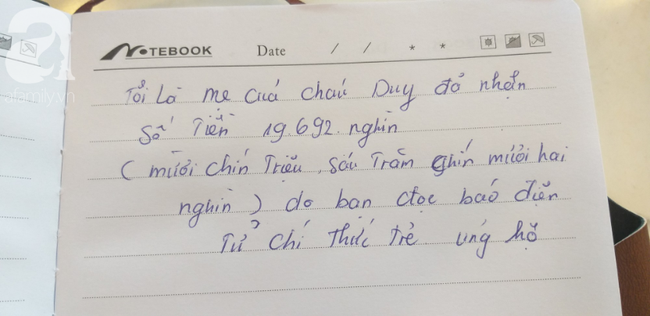 NOTEBOOK Date / / * *
afamily.vn
Tôi Là mẹ cuả cháu Duy đã nhận
Số Tiền 19.692.nghìn
( mười chín Triệu, sáu Trăm chín mười hai
nghìn ) do bạn đọc báo điện
Tử chí thức trẻ ủng hộ